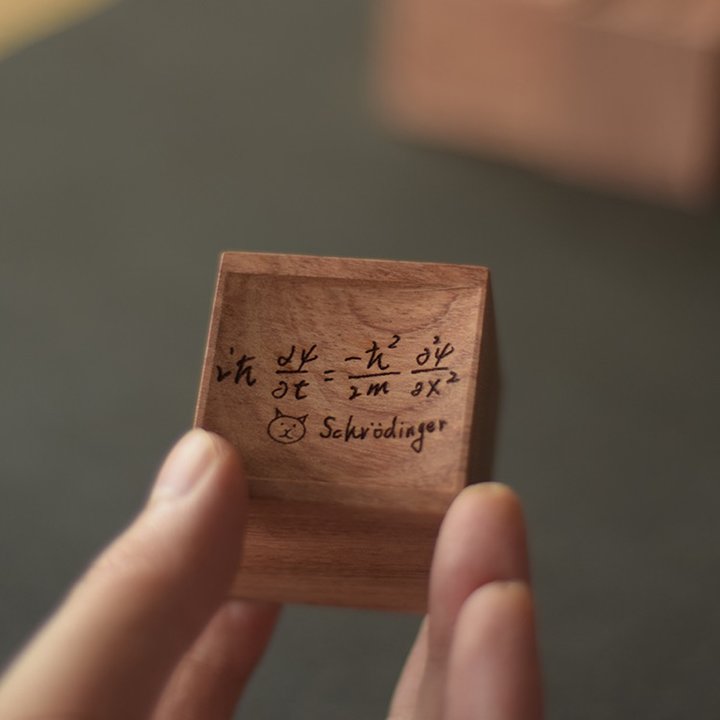 iℏ ∂ψ/∂t = -ℏ²/2m ∂²ψ/∂x²
Schrödinger